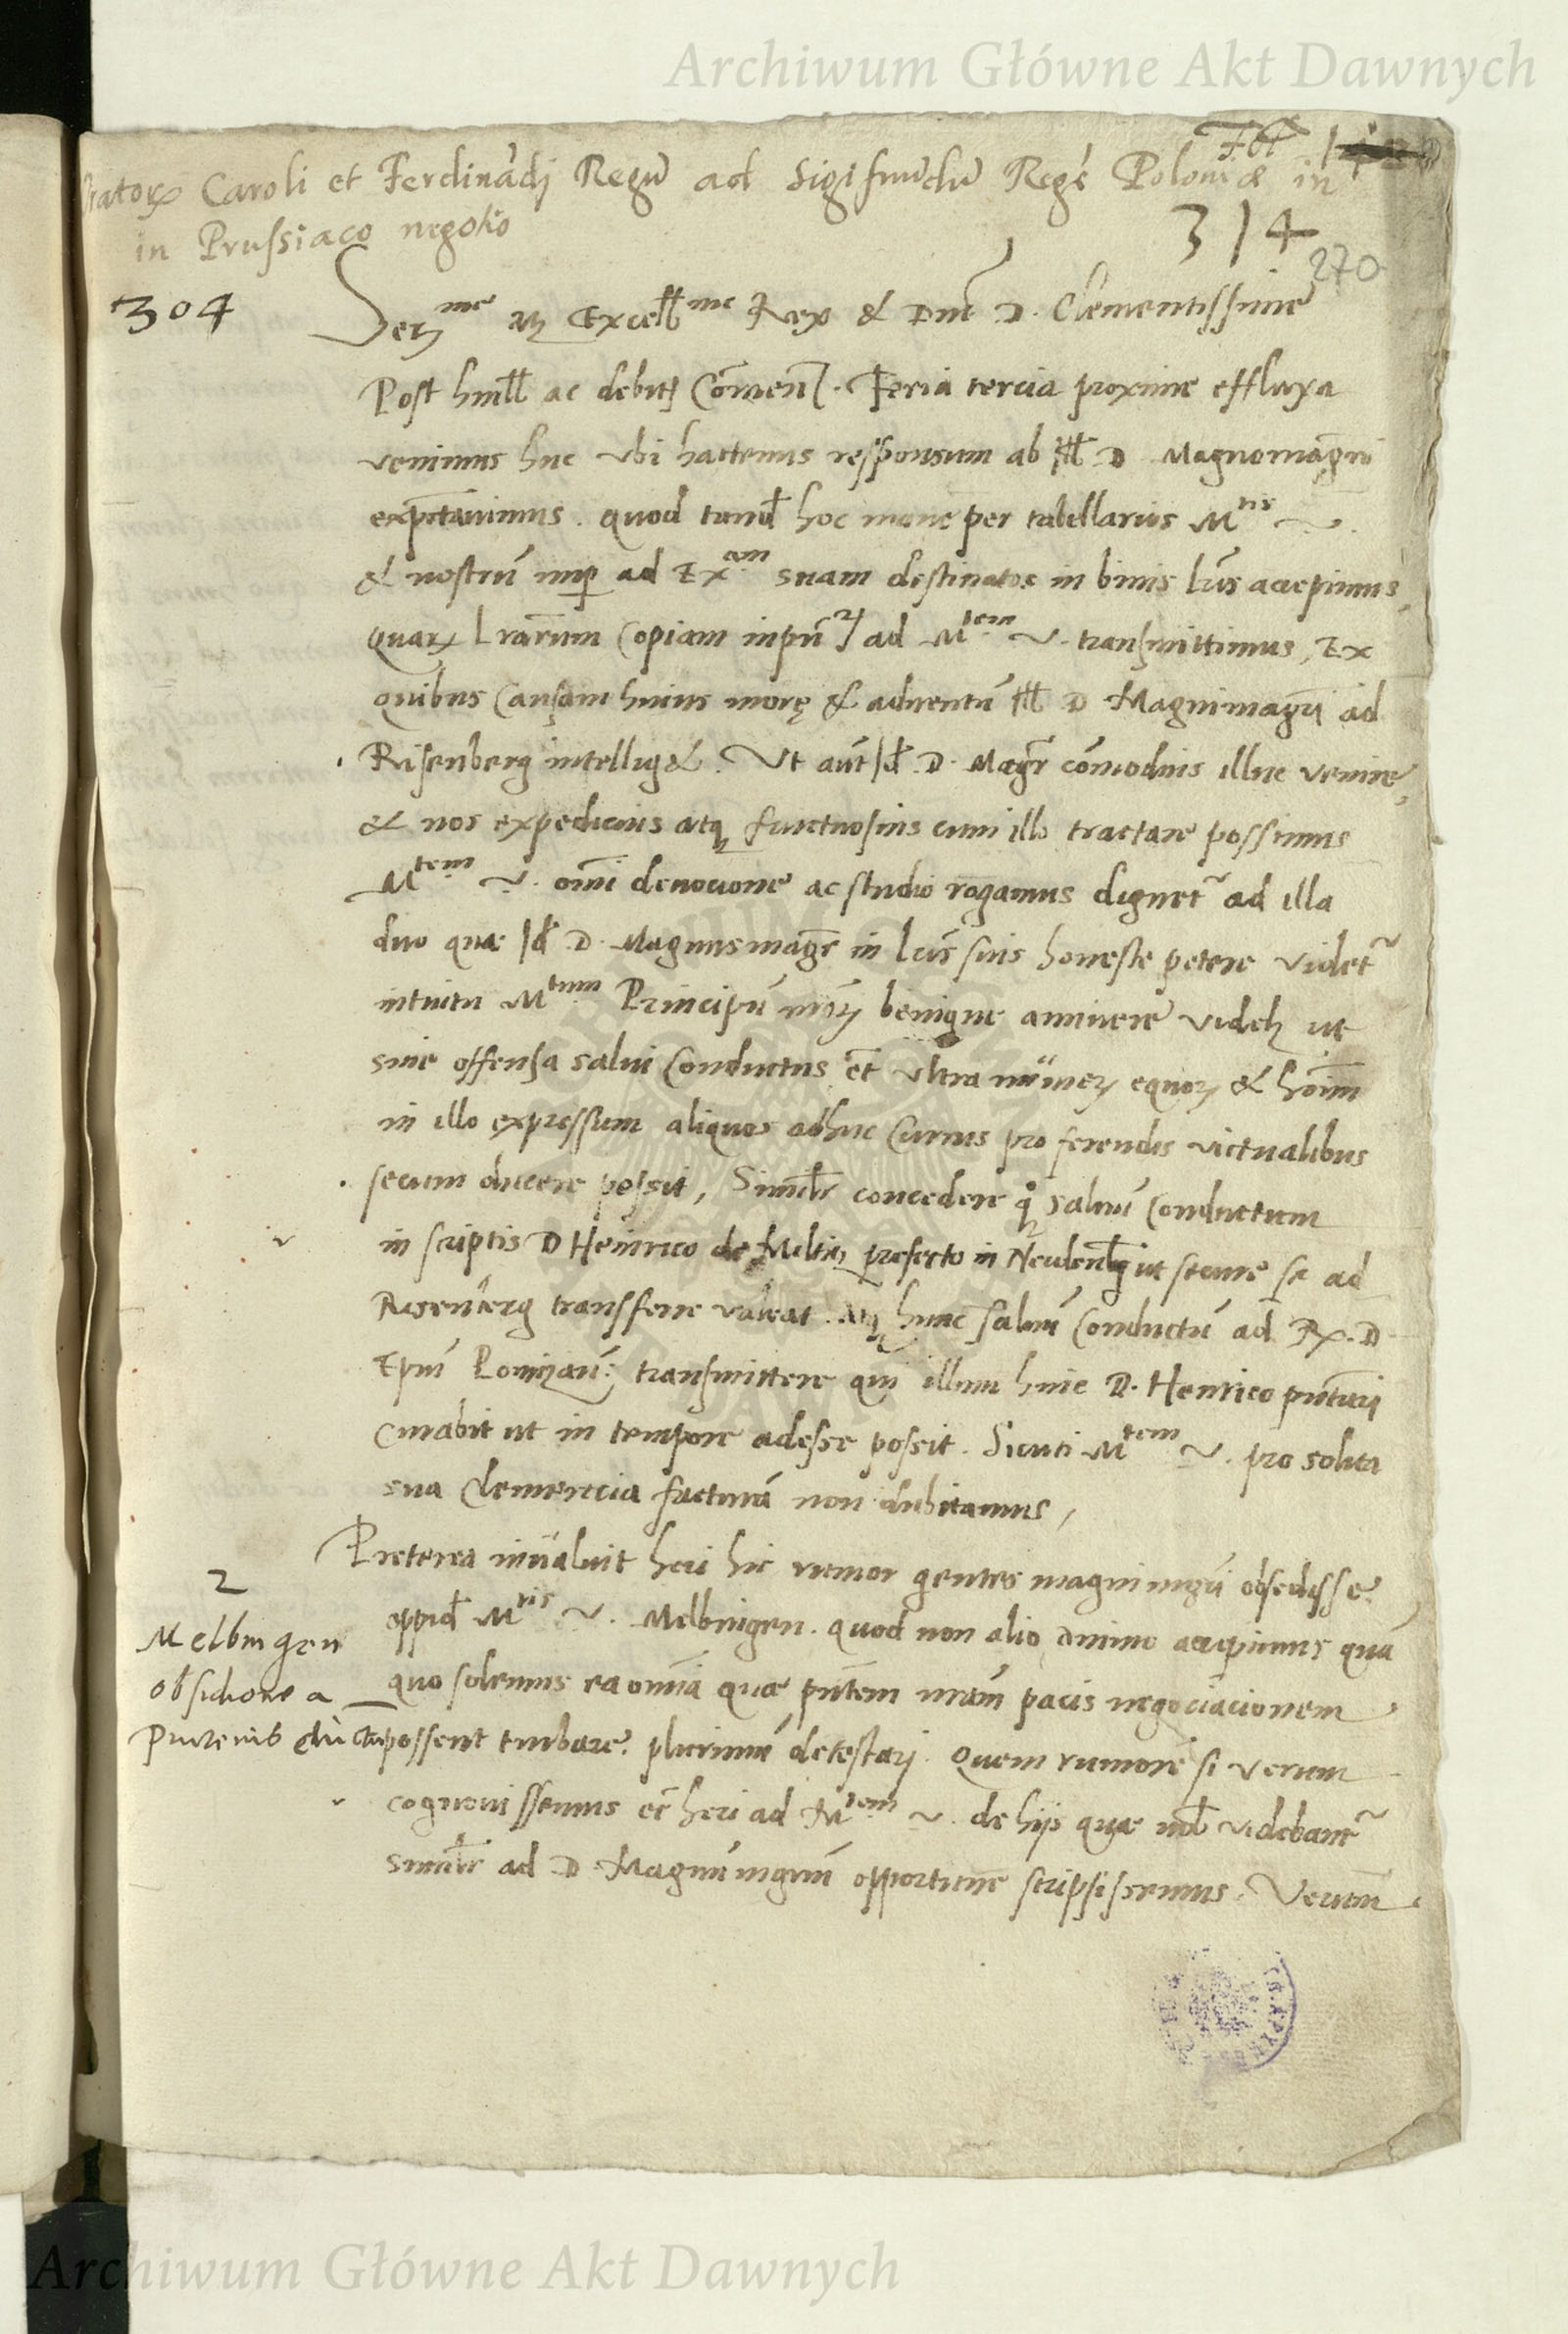 Archiwum Główne Akt Dawnych
Caroli et Ferdinãdj Regũ ad Sigismũdũ Regẽ Poloniæ in
in Prussiaco negotio
314
270
304
Serme ac Excellme Rex & Dne D. Clementissime
Post humll ac debitā Cõmen. Feria tercia proxime effluxa
venimus huc vbi hactenus responsum ab Ill D Magnomagrõ
expectavimus. quod tand hoc mane per tabellarios Mtis v.
& nostrũ nup ad Exam suam destinatos in binis lris accepimus,
Quarũ Lrarum Copiam ad Mtem v. transmittimus, Ex
quibus Causam huius morę & adventũ Ill D Magnimagrj ad
Risenberg intelliget. Ut aut Id D. Magr cõmodius illuc venire,
& nos expedicius atq fructuosius cum illo tractare possimus
Mtem v. omi devocione ac studio rogamus dignet ad illa
duo quæ Id D. Magnusmagr in lris suis honeste petere videt
intuitu Mtum Principũ nrõr benigne annuere videlz ut
sine offensa salvi Conductus et ultra numerũ equorũ & hoim
in illo expressum aliquos adhuc Currus pro ferendis victualibus
secum ducere possit, Similr concedere q salvũ Conductum
in scriptis D Heinrico de Miltiz prefecto in Neidenbg ut secure se ad
Risenberg transferre valeat. Atq hunc salvũ Conductũ ad Rx. D
Epm Pomezan: transmittere qui illum huic D. Henrico pntari
curabit ut in tempore adesse possit. Sicuti Mtem v. pro solita
sua Clemencia facturã non dubitamus,
Preterea invaluit heri hic rumor gentes magnimgrj obsedisse
oppid Mtis v. Melbingen. quod non alio animo accipimus quã
quo solemus ea omnia quæ pntem nram pacis negociacionem
possent turbare, plurimũ detestarj. Quem rumore si verum
cognovissemus et heri ad Mtem v. de hijs quæ nob videbant
similr ad D Magnũmgrm opportune scripsissemus. Verum
2
Melbingen
obsidione a
Prutenis cincta
Archiwum Główne Akt Dawnych